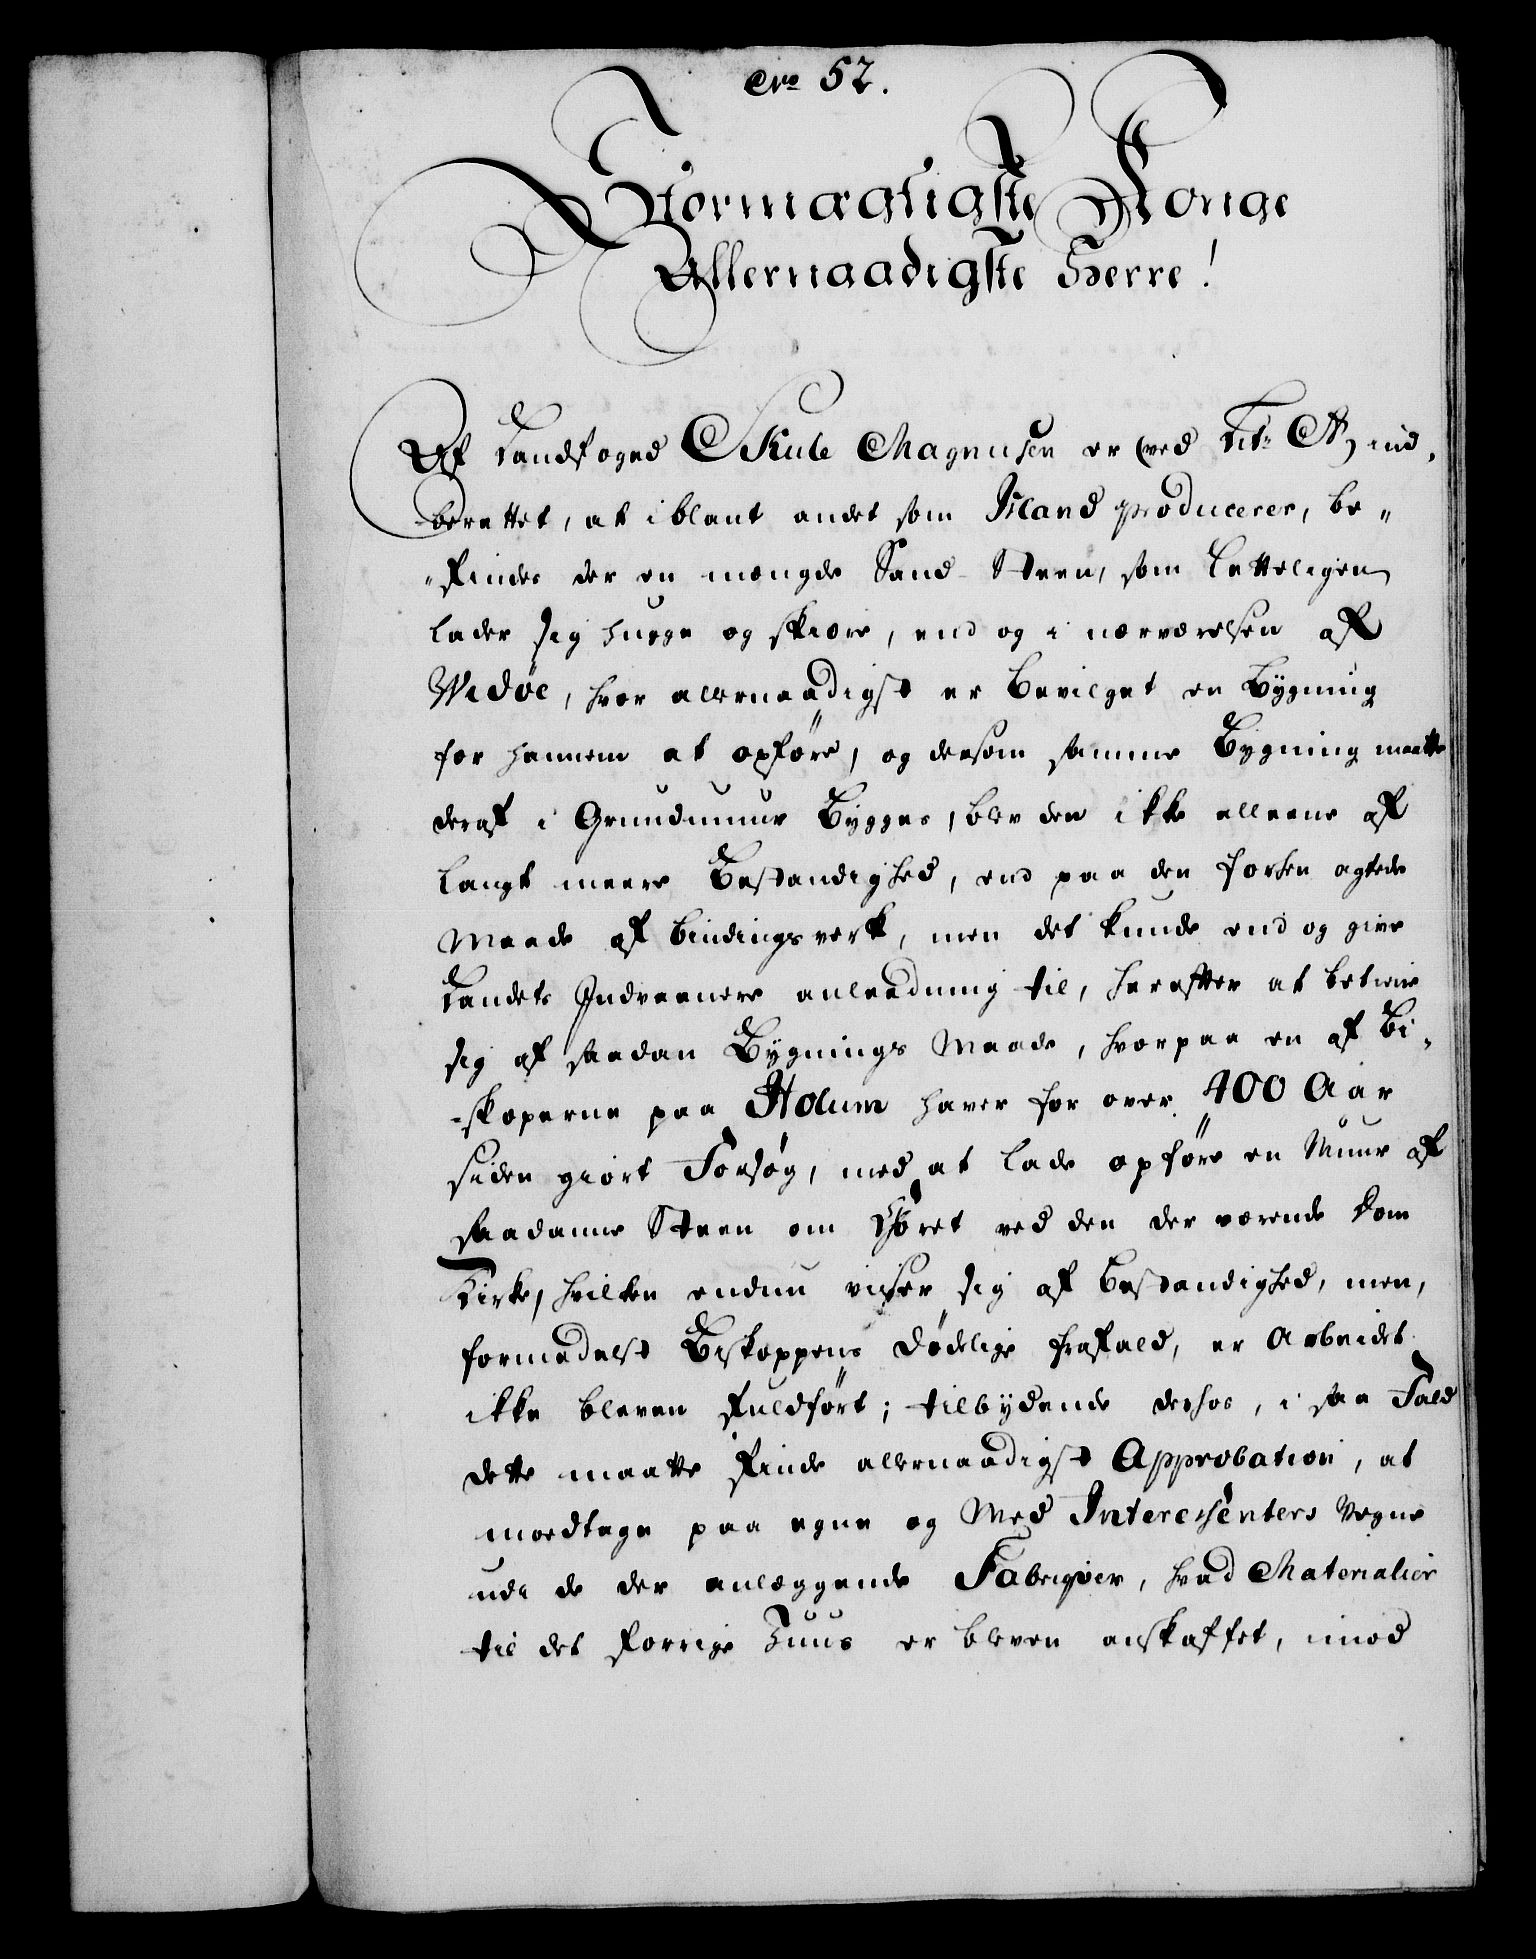 No 52.
Stormægtigste Konge
Allernaadigste Herre!
Af Landfoged Skule Magnusen er (ved Lit: A) ind-
berettet, at iblant andet som Island producerer, be-
-findes der en mængde Sand-Steen, som letteligen
lader sig hugge og skiære, end og i nærværelsen af
Widöe, hvor allernaadigst er bevilget en Bÿgning
for hannem at opföre, og dersom samme Bygning maatte
deraf i Grundmuur Bygges, blev den ikke alleene af
langt meere Bestandighed, end paa den forhen agtede
Maade af bindingsverk, men det kunde end og give
Landets Indvaanere anleedning til, herefter at betiene
sig af saadan Bÿgnings Maade, hvorpaa en af Bi-
-skoperne paa Holum haver for over 400 Aar
siden giort Forsøg, med at lade opföre en Muur af
saadanne Steen om Choret ved den der værende Dom
Kirke, hvilken endnu viiser sig af Bestandighed, men,
formedelst Biskoppens dödelige frafald, er Arbeidet
ikke bleven fuldfört; tilbÿdende derhos, i saa Fald
dette maatte finde allernaadigst Approbation, at
modtage paa egne og Med Interessenters Vegne
udi de der anlæggende Fabriqver, hvad Materialier
til det forrige Huus er bleven anskaffet, imod